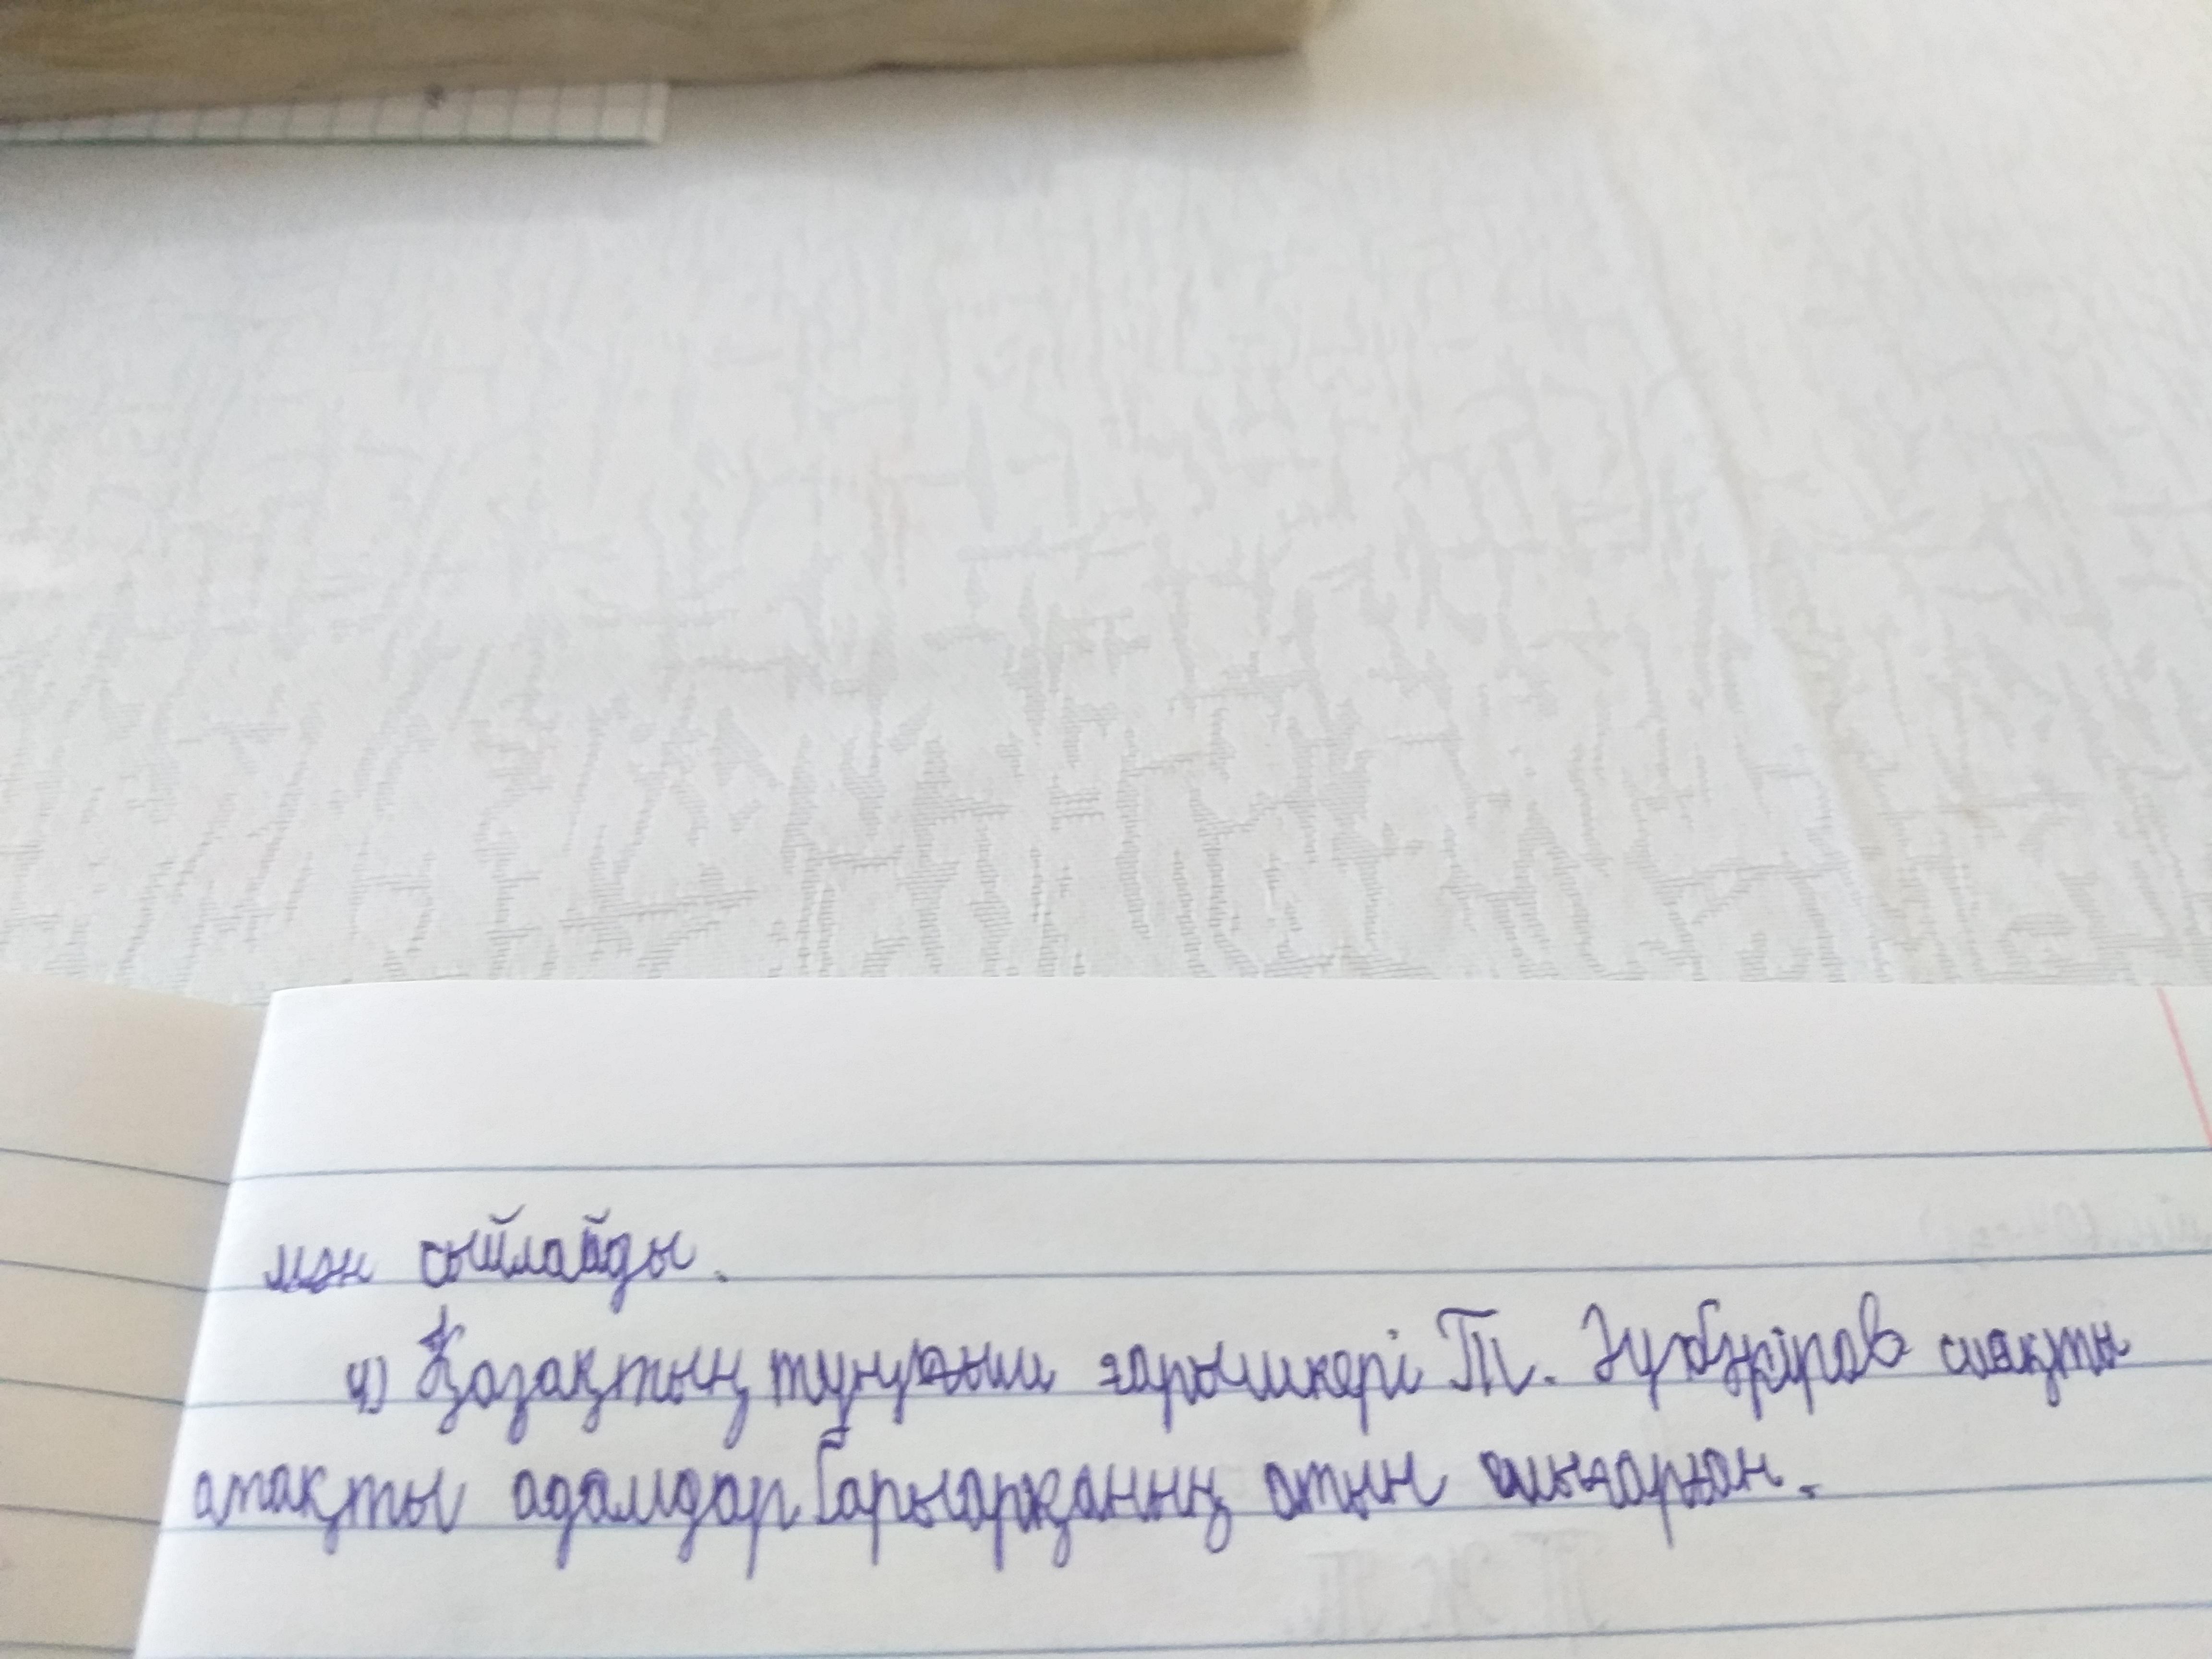 мән сыйлайды.
4) Қазақтың тұңғыш ғарышкері Т. Әубәкіров сияқты
атақты адамдар Сарыарқаның атын шығарған.